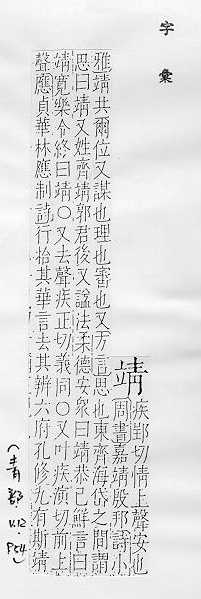 字彙
靖
疾郢切情上聲安也
周書嘉靖殷邦詩小
雅靖共爾位又謀也理也審也又方言思也東齊海岱之間謂
思曰靖又姓齊靖郭君後又謚法柔德安衆曰靖恭已鮮言曰
靖寬樂令終曰靖〇又去聲疾正切義同〇又叶疾演切前上
聲應貞華林應制詩行捨其華言去其辨六府孔修九有斯靖
(青部 V.12. P54)